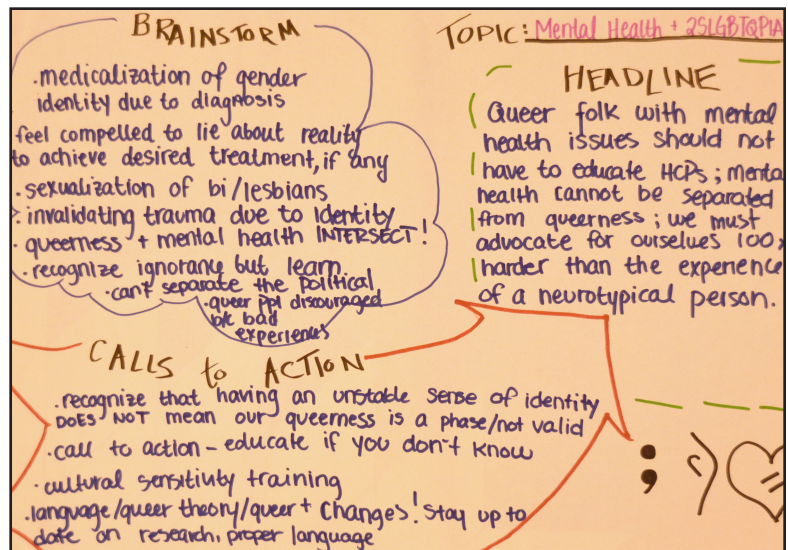 BRAINSTORM
.medicalization of gender
identity due to diagnosis
feel compelled to lie about reality
to achieve desired treatment, if any
.sexualization of bi/lesbians
. invalidating trauma due to identity
. queerness + mental health INTERSECT!
.recognize ignorance but learn
.can't separate the political
.queer ppl discouraged
b/c bad
experiences
TOPIC: Mental Health + 2SLGBTQPIA
HEADLINE
Queer folk with mental
health issues should not
have to educate HCPs; menta
health cannot be separated
from queerness; we must
advocate for ourselves 100x
harder than the experience
of a neurotypical person.
CALLS to ACTION
.recognize that having an unstable sense of identity
DOES NOT mean our queerness is a phase/not valid
.call to action - educate if you don't know
.cultural sensitivity training
.language/queer theory/queer + changes! Stay up to
date on research, proper language